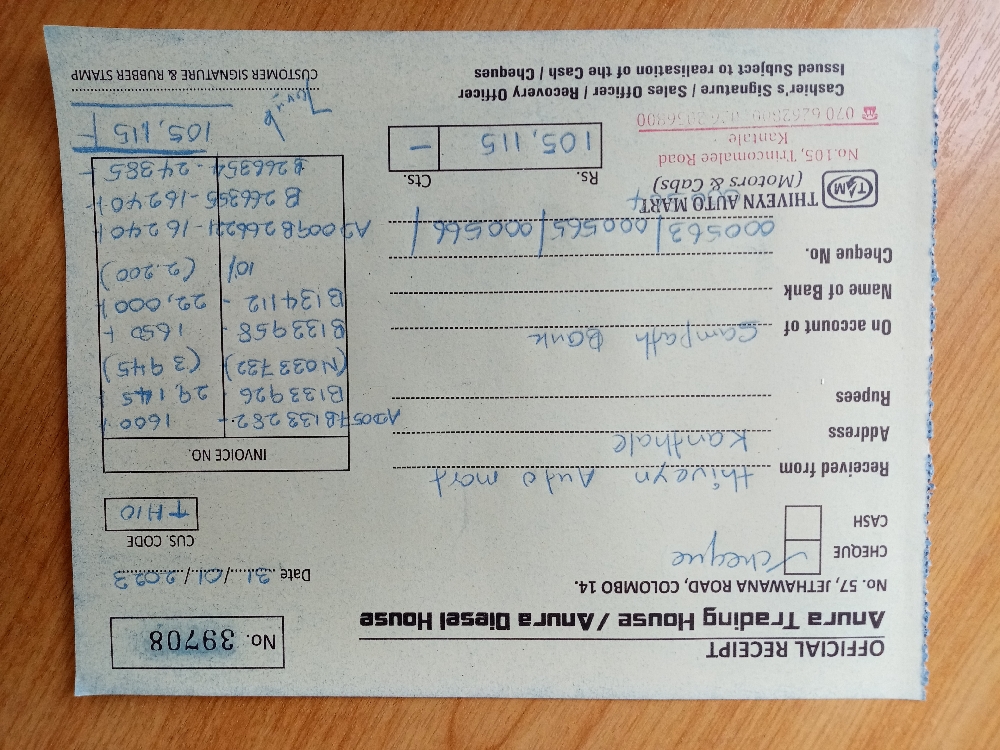 OFFICIAL RECEIPT
Anura Trading House / Anura Diesel House
No. 57, JETHAWANA ROAD, COLOMBO 14.
No. 39708
Date 31/01/2023
CHEQUE cheque
CASH
CUS. CODE
TH10
Received from Thiveyn Auto mart
Address Kanthale
Rupees
On account of Sampath Bank
Name of Bank
Cheque No. 000563/000565/000566/
INVOICE NO.
AD057B133282 - 1600/
B133926 29,145
(N033732) (3945)
B133958 - 1650/
B134112 - 22,000/
10/ (2,200)
AD009B266221-16240/
B266355-16240/
B266354-24385/
105,115/-
Rs. Cts.
105,115 -
THIVEYN AUTO MART
(Motors & Cabs)
No.105, Trincomalee Road
Kantale
TAM
Cashier's Signature / Sales Officer / Recovery Officer
Issued Subject to realisation of the Cash / Cheques
CUSTOMER SIGNATURE & RUBBER STAMP